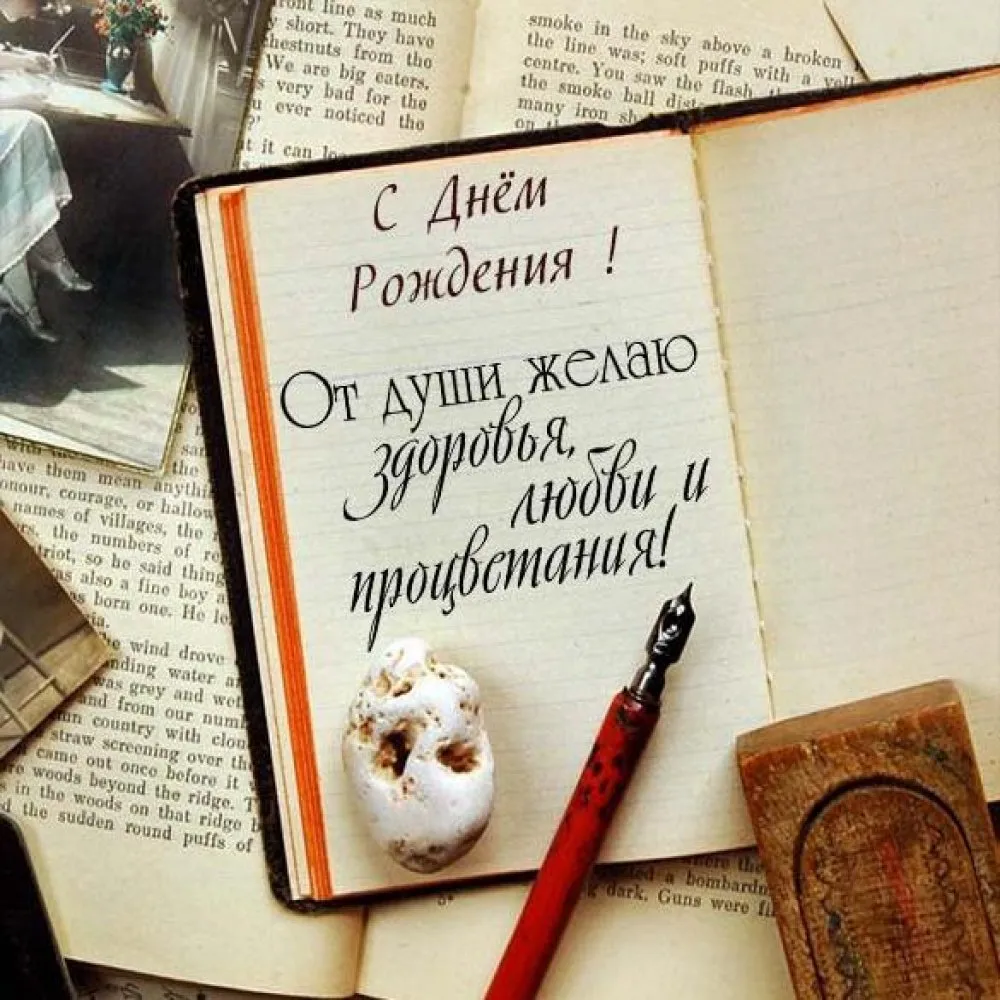 ront line as much
short. They have
hestnuts from the
We are big eaters.
very bad for the
u ever noticed the
t it can
smoke in the sky above a broken
the line was; soft puffs with a
centre. You saw the flash,
the smoke ball
many iron
С Днём
Рождения !
От души желаю
здоровья,
любви и
процветания!
have them mean anythi
onour, courage, or hallow
names of villages, the
the numbers of re
triot, so he said thing
as also a fine boy a
s born one. He le
ia.
e wind drove
nding water a
was grey and wet
and from our num
n country with clou
straw screening over the
came out once before it
e woods beyond the ridge. T
in the woods on that ridge b
d the sudden round puffs of
where the
a bombardm
dark. Guns were fi